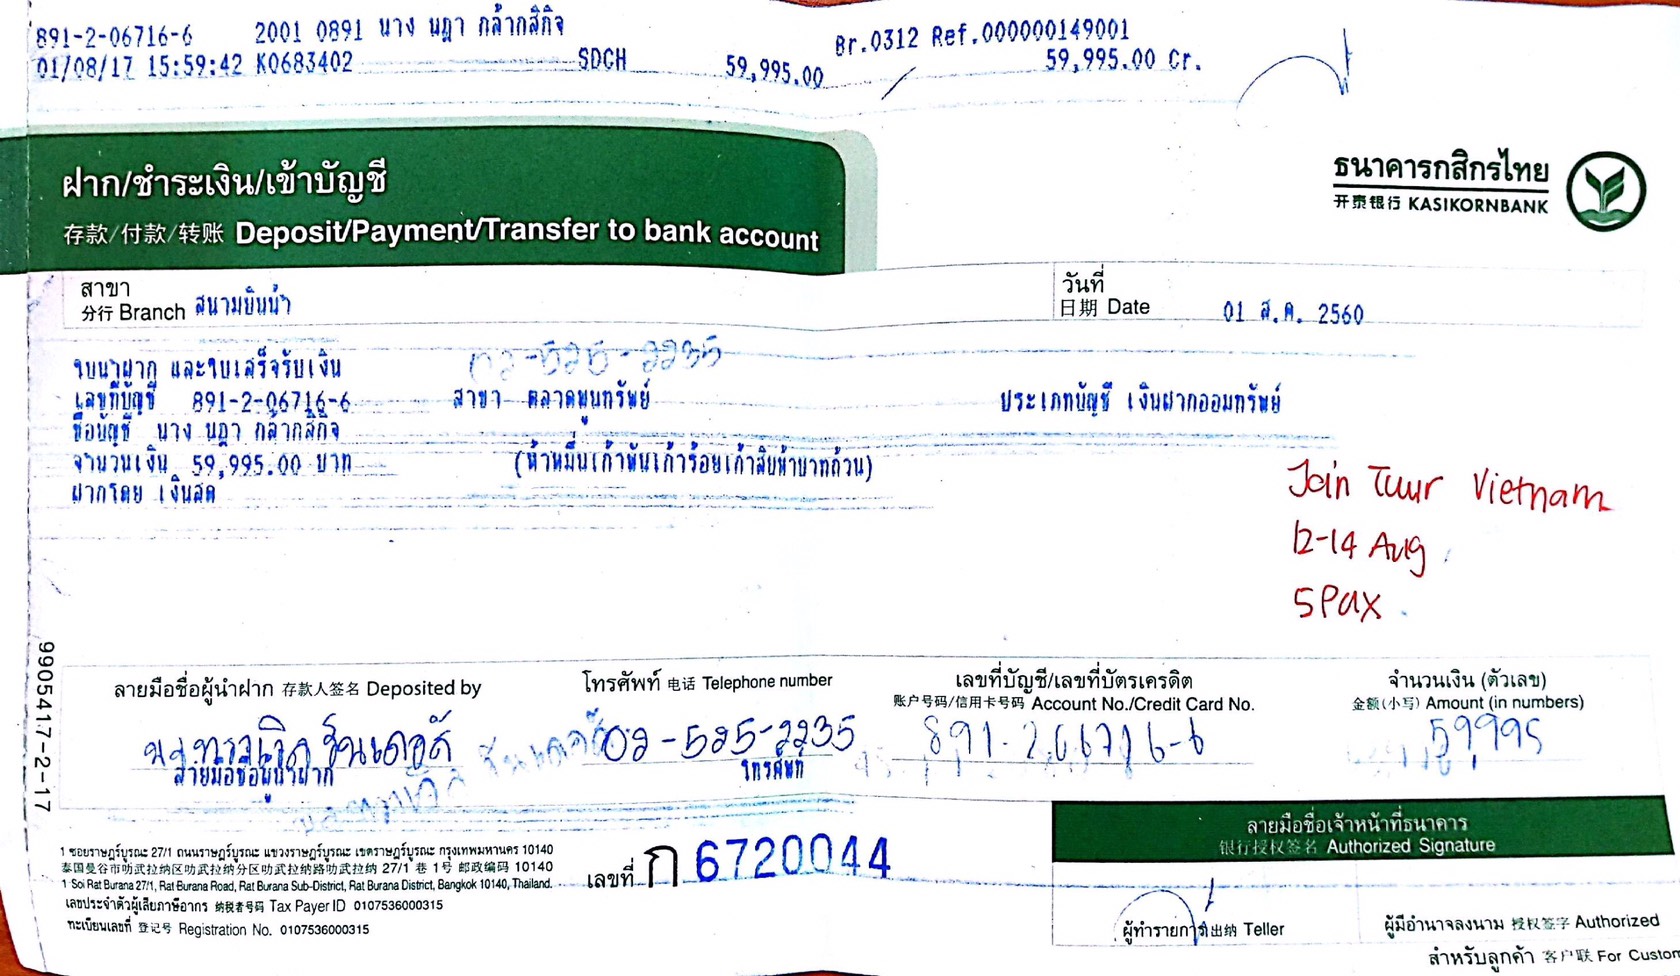 891-2-06716-6 2001 0891 นาง นฎา กล้ากสิกิจ Br.0312 Ref.000000149001
01/08/17 15:59:42 K0683402 SDCH 59,995.00 59,995.00 Cr.
ฝาก/ชำระเงิน/เข้าบัญชี
存款/付款/转账 Deposit/Payment/Transfer to bank account
ธนาคารกสิกรไทย
开泰银行 KASIKORNBANK
สาขา
分行 Branch สนามบินน้ำ
วันที่
日期 Date 01 ส.ค. 2560
ใบนำฝาก และใบเสร็จรับเงิน 02-525-2235
เลขที่บัญชี 891-2-06716-6 สาขา ตลาดพูนทรัพย์ ประเภทบัญชี เงินฝากออมทรัพย์
ชื่อบัญชี นาง นฎา กล้ากสิกิจ
จำนวนเงิน 59,995.00 บาท (ห้าหมื่นเก้าพันเก้าร้อยเก้าสิบห้าบาทถ้วน)
ฝากโดย เงินสด
Join Tour Vietnam
12-14 Aug
5 Pax
9905417-2-17
ลายมือชื่อผู้นำฝาก 存款人签名 Deposited by
โทรศัพท์ 电话 Telephone number
02-525-2235
เลขที่บัญชี/เลขที่บัตรเครดิต
账户号码/信用卡号码 Account No./Credit Card No.
891-206716-6
จำนวนเงิน (ตัวเลข)
金额(小写) Amount (in numbers)
59995
ลายมือชื่อผู้นำฝาก โทรศัพท์
1 ซอยราษฎร์บูรณะ 27/1 ถนนราษฎร์บูรณะ แขวงราษฎร์บูรณะ เขตราษฎร์บูรณะ กรุงเทพมหานคร 10140
泰国曼谷市叻武拉纳区叻武拉纳分区叻武拉纳路叻武拉纳 27/1 巷 1号 邮政编码 10140
1 Soi Rat Burana 27/1, Rat Burana Road, Rat Burana Sub-District, Rat Burana District, Bangkok 10140, Thailand.
เลขประจำตัวผู้เสียภาษีอากร 纳税者号码 Tax Payer ID 0107536000315
ทะเบียนเลขที่ 登记号 Registration No. 0107536000315
เลขที่ ก 6720044
ลายมือชื่อเจ้าหน้าที่ธนาคาร
银行授权签名 Authorized Signature
ผู้ทำรายการ 出纳 Teller
ผู้มีอำนาจลงนาม 授权签字 Authorized
สำหรับลูกค้า 客户联 For Custom